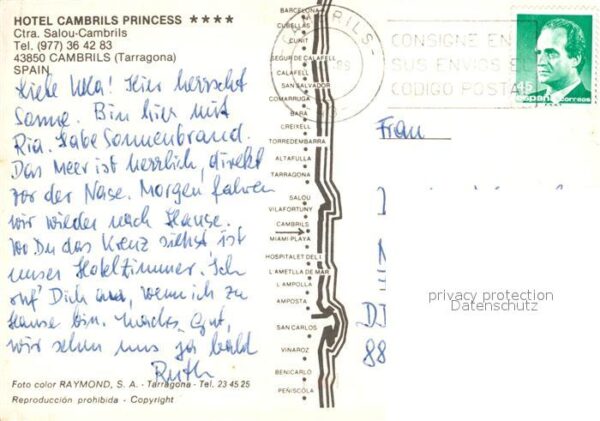 HOTEL CAMBRILS PRINCESS ★★★★
Ctra. Salou-Cambrils
Tel. (977) 36 42 83
43850 CAMBRILS (Tarragona)
SPAIN
Hier herrscht
Sonne. Bin hier mit
Ria. Habe Sonnenbrand.
Das Meer ist herrlich, direkt
vor der Nase. Morgen fahren
wir wieder nach Hause.
wo Du das Kreuz siehst ist
unser Hotelzimmer. Ich
ruf' Dich an, wenn ich zu
Hause bin. Machs Gut,
wir sehen uns ja bald
Ruth
Foto color RAYMOND, S. A. - Tarragona - Tel. 23 45 25
Reproducción prohibida - Copyright
BARCELONA
CUBELLAS
CUNIT
SEGUR DE CALAFELL
CALAFELL
SAN SALVADOR
COMARRUGA
BARÁ
CREIXELL
TORREDEMBARRA
ALTAFULLA
TARRAGONA
SALOU
VILAFORTUNY
CAMBRILS
MIAMI PLAYA
HOSPITALET DEL I.
L AMETLLA DE MAR
L AMPOLLA
AMPOSTA
SAN CARLOS
VINAROZ
BENICARLO
PEÑISCOLA
CONSIGNE EN
SUS ENVIOS EL
CODIGO POSTAL
45
España correos
Frau
88
privacy protection
Datenschutz